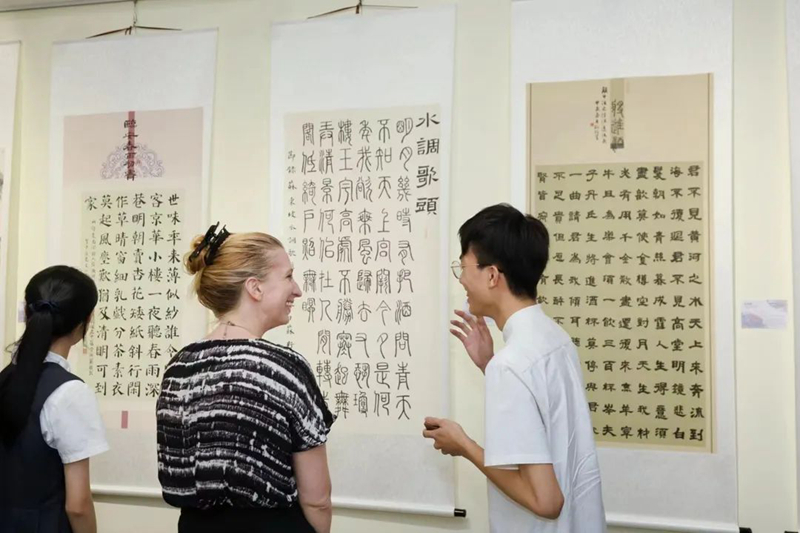 臨安春雨初霽
世味年來薄似紗誰令
客京華小樓一夜聽春雨深
巷明朝賣杏花矮紙斜行閒
作草晴窗細乳戲分茶素衣
莫起風塵歎猶及清明可到
家
水調歌頭
明月幾時有把酒問青天
不知天上宮闕今夕是何
年我欲乘風歸去又恐瓊
樓玉宇高處不勝寒起舞
弄清影何似在人間轉朱
閣低綺戶照無眠
節錄蘇東坡
將進酒
君不見黃河之水天上來奔流到
海不復迴君不見高堂明鏡悲白
髮朝如青絲暮成雪人生得意須
盡歡莫使金樽空對月天生我材
必有用千金散盡還復來烹羊宰
牛且為樂會須一飲三百杯岑夫
子丹丘生將進酒杯莫停與君
一曲請君為我傾耳
不足貴但願長醉不
賢皆寂